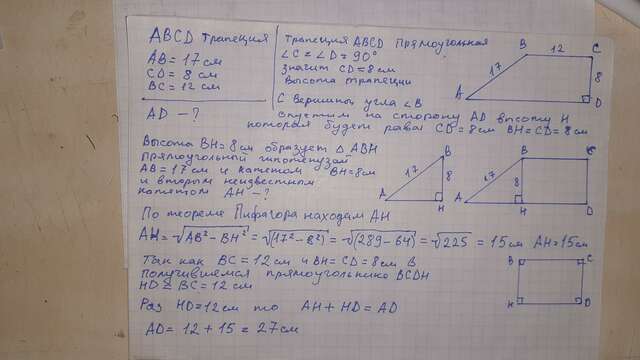 ABCD трапеция
AB = 17 см
CD = 8 см
BC = 12 см
AD — ?
Трапеция ABCD прямоугольная
∠C = ∠D = 90°
значит CD = 8 см
высота трапеции
B 12 C
17 8
A D
С вершины угла ∠B
опустим на сторону AD высоту H
которая будет равна CD = 8 см BH = CD = 8 см
Высота BH = 8 см образует △ABH
прямоугольный гипотенузой
AB = 17 см и катетом BH = 8 см
и вторым неизвестным
катетом AH — ?
B B C
17 8 17 8
A H A H D
По теореме Пифагора находим AH
AH = √(AB² − BH²) = √(17² − 8²) = √(289 − 64) = √225 = 15 см AH = 15 см
Так как BC = 12 см и BH = CD = 8 см В
получившемся прямоугольнике BCDH
HD = BC = 12 см
B C
H D
Раз HD = 12 см то AH + HD = AD
AD = 12 + 15 = 27 см